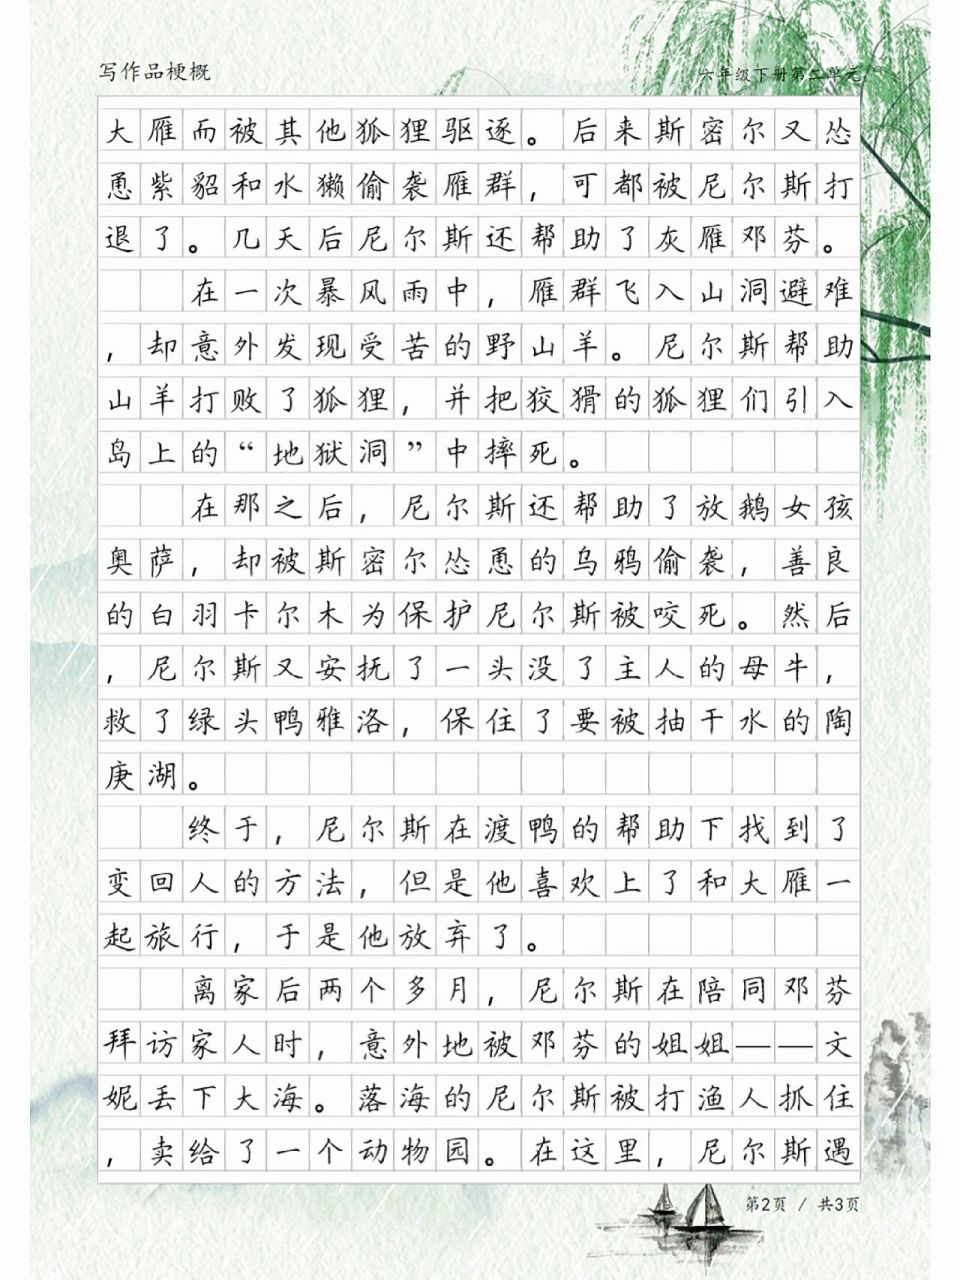 写作品梗概
六年级下册第二单元
大雁而被其他狐狸驱逐。后来斯密尔又怂
恿紫貂和水獭偷袭雁群，可都被尼尔斯打
退了。几天后尼尔斯还帮助了灰雁邓芬。
在一次暴风雨中，雁群飞入山洞避难
，却意外发现受苦的野山羊。尼尔斯帮助
山羊打败了狐狸，并把狡猾的狐狸们引入
岛上的“地狱洞”中摔死。
在那之后，尼尔斯还帮助了放鹅女孩
奥萨，却被斯密尔怂恿的乌鸦偷袭，善良
的白羽卡尔木为保护尼尔斯被咬死。然后
，尼尔斯又安抚了一头没了主人的母牛，
救了绿头鸭雅洛，保住了要被抽干水的陶
庚湖。
终于，尼尔斯在渡鸭的帮助下找到了
变回人的方法，但是他喜欢上了和大雁一
起旅行，于是他放弃了。
离家后两个多月，尼尔斯在陪同邓芬
拜访家人时，意外地被邓芬的姐姐——文
妮丢下大海。落海的尼尔斯被打渔人抓住
，卖给了一个动物园。在这里，尼尔斯遇
第2页 / 共3页